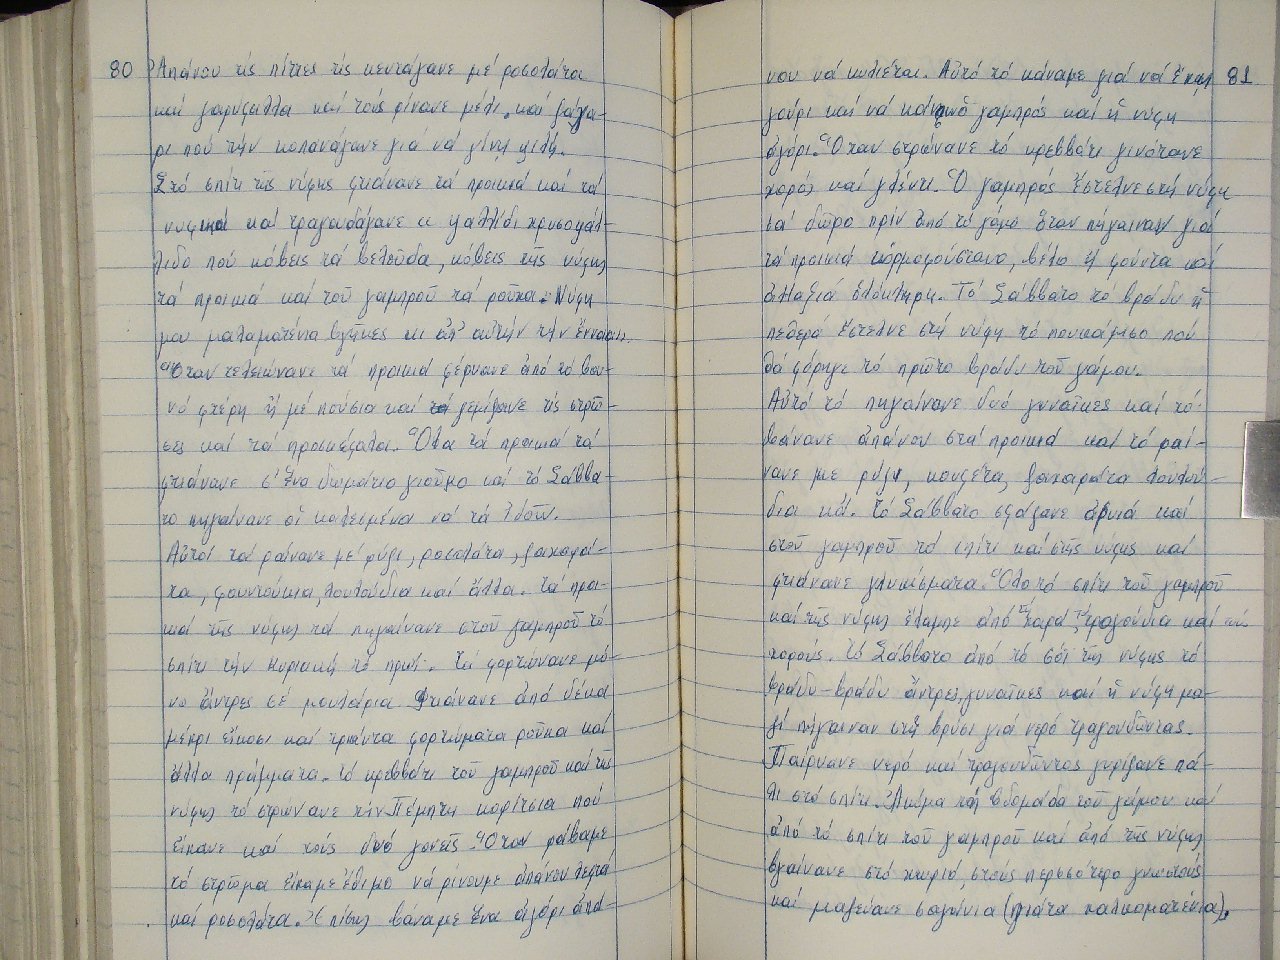 80 Ἀπάνου τίς πίττες τίς κεντάγανε μέ ροσολάτα
καί γαρύφαλλα καί τούς ρίνανε μέλι, καί ζάχα-
ρι πού τήν κοπανάγανε γιά νά γίνη ψιλή.
Στό σπίτι τῆς νύφης φτιάνανε τά προικιά καί τά
νυφικά καί τραγουδάγανε " ψαλλίδι χρυσοψάλ-
λιδο πού κόβεις τά βελοῦδα, κόβεις τῆς νύφης
τά προικιά καί τοῦ γαμπροῦ τά ροῦχα. Νύφη
μου μαλαματένια βγῆκες κι ἀπ' αὐτήν τήν ἔννοια".
Ὅταν τελειώνανε τά προικιά φέρνανε ἀπό τό βου-
νό φτέρη ἤ μέ πούσια καί γεμίζανε τίς στρῶ-
σες καί τά προσκέφαλα. Ὅλα τά προικιά τά
φτιάνανε σ' ἕνα δωμάτιο γιοῦκο καί τό Σάββα-
το πηγαίνανε οἱ καλεσμένοι νά τά ἰδοῦν.
Αὐτοί τά ραίνανε μέ ρύζι, ροσολάτα, ζαχαρά-
τα, φουντούκια, λουλούδια καί ἄλλα. Τά προι-
κιά τῆς νύφης τά πηγαίνανε στοῦ γαμπροῦ τό
σπίτι τήν Κυριακή τό πρωί. Τά φορτώνανε μό-
νο ἄντρες σέ μουλάρια. Φτιάνανε ἀπό δέκα
μέχρι εἴκοσι καί τριάντα φορτώματα ροῦχα καί
ἄλλα πράγματα. Τό κρεββάτι τοῦ γαμπροῦ καί τῆς
νύφης τό στρώνανε τήν Πέμπτη κορίτσια πού
εἴχανε καί τούς δυό γονεῖς. Ὅταν ράβαμε
τό στρῶμα εἴχαμε ἔθιμο νά ρίνουμε ἀπάνου λεφτά
καί ροσολάτα. Ἐπίσης βάναμε ἕνα ἀγόρι ἀπά-
νου νά κυλιέται. Αὐτό τό κάναμε γιά νά ἔχη 81
γούρι καί νά κάνη ὁ γαμπρός καί ἡ νύφη
ἀγόρι. Ὅταν στρώνανε τό κρεββάτι γινότανε
χορός καί γλέντι. Ὁ γαμπρός ἔστελνε στή νύφη
σά δῶρο πρίν ἀπό τό γάμο ὅταν πήγαιναν γιά
τά προικιά κορμοφούστανο, βέλο ἤ φούντα καί
ἀλλαξιά ὁλόκληρη. Τό Σάββατο τό βράδυ ἡ
πεθερά ἔστελνε στή νύφη τό πουκάμισο πού
θά φόρηγε τό πρῶτο βράδυ τοῦ γάμου.
Αὐτό τό πηγαίνανε δυό γυναῖκες καί τό
βάνανε ἀπάνου στά προικιά καί τό ραί-
νανε με ρύζι, κουφέτα, ζαχαράτα λουλού-
δια κά. Τό Σάββατο σφάζανε ἀρνιά καί
στοῦ γαμπροῦ τό σπίτι καί στῆς νύφης καί
φτιάνανε γλυκίσματα. Ὅλο τό σπίτι τοῦ γαμπροῦ
καί τῆς νύφης ἔλαμπε ἀπό χαρά τραγούδια καί
χορούς. Τό Σάββατο ἀπό τό σόι τῆς νύφης τό
βράδυ-βράδυ ἄντρες, γυναῖκες καί ἡ νύφη μα-
ζί πήγαιναν στή βρύση γιά νερό τραγουδῶντας.
Παίρνανε νερό καί τραγουδῶντας γύριζανε πά-
λι στό σπίτι. Ἀκόμα τή βδομάδα τοῦ γάμου καί
ἀπό τό σπίτι τοῦ γαμπροῦ καί ἀπό τῆς νύφης
βγαίνανε στό χωριό, στούς περσσότερο γνωστούς
καί μαζεύανε σαγάνια (πιάτα χαλκοματένια).